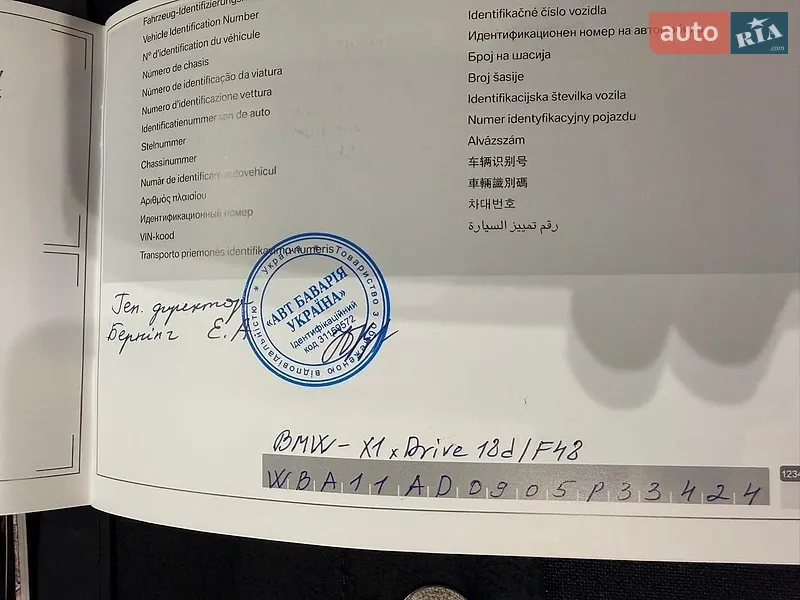 Fahrzeug-Identifizierungs
Vehicle Identification Number
N° d'identification du véhicule
Número de chasis
Número de identificação da viatura
Numero d'identificazione vettura
Identificatienummer van de auto
Stelnummer
Chassinummer
Număr de identificare autovehicul
Αριθμός πλαισίου
Идентификационный номер
VIN-kood
Transporto priemonės identifikavimo numeris
Identifikačné číslo vozidla
Идентификационен номер на авто
Број на шасија
Broj šasije
Identifikacijska številka vozila
Numer identyfikacyjny pojazdu
Alvázszám
车辆识别号
車輛識別碼
차대번호
رقم تمييز السيارة
auto RIA .com
Ген. директор
Бернінг Е.А
Україна * Товариство з обмеженою відповідальністю *
«АВТ БАВАРІЯ
УКРАЇНА»
Ідентифікаційний
код
BMW - X1 xDrive 18d/F48
WBA11AD0905P33424
1234